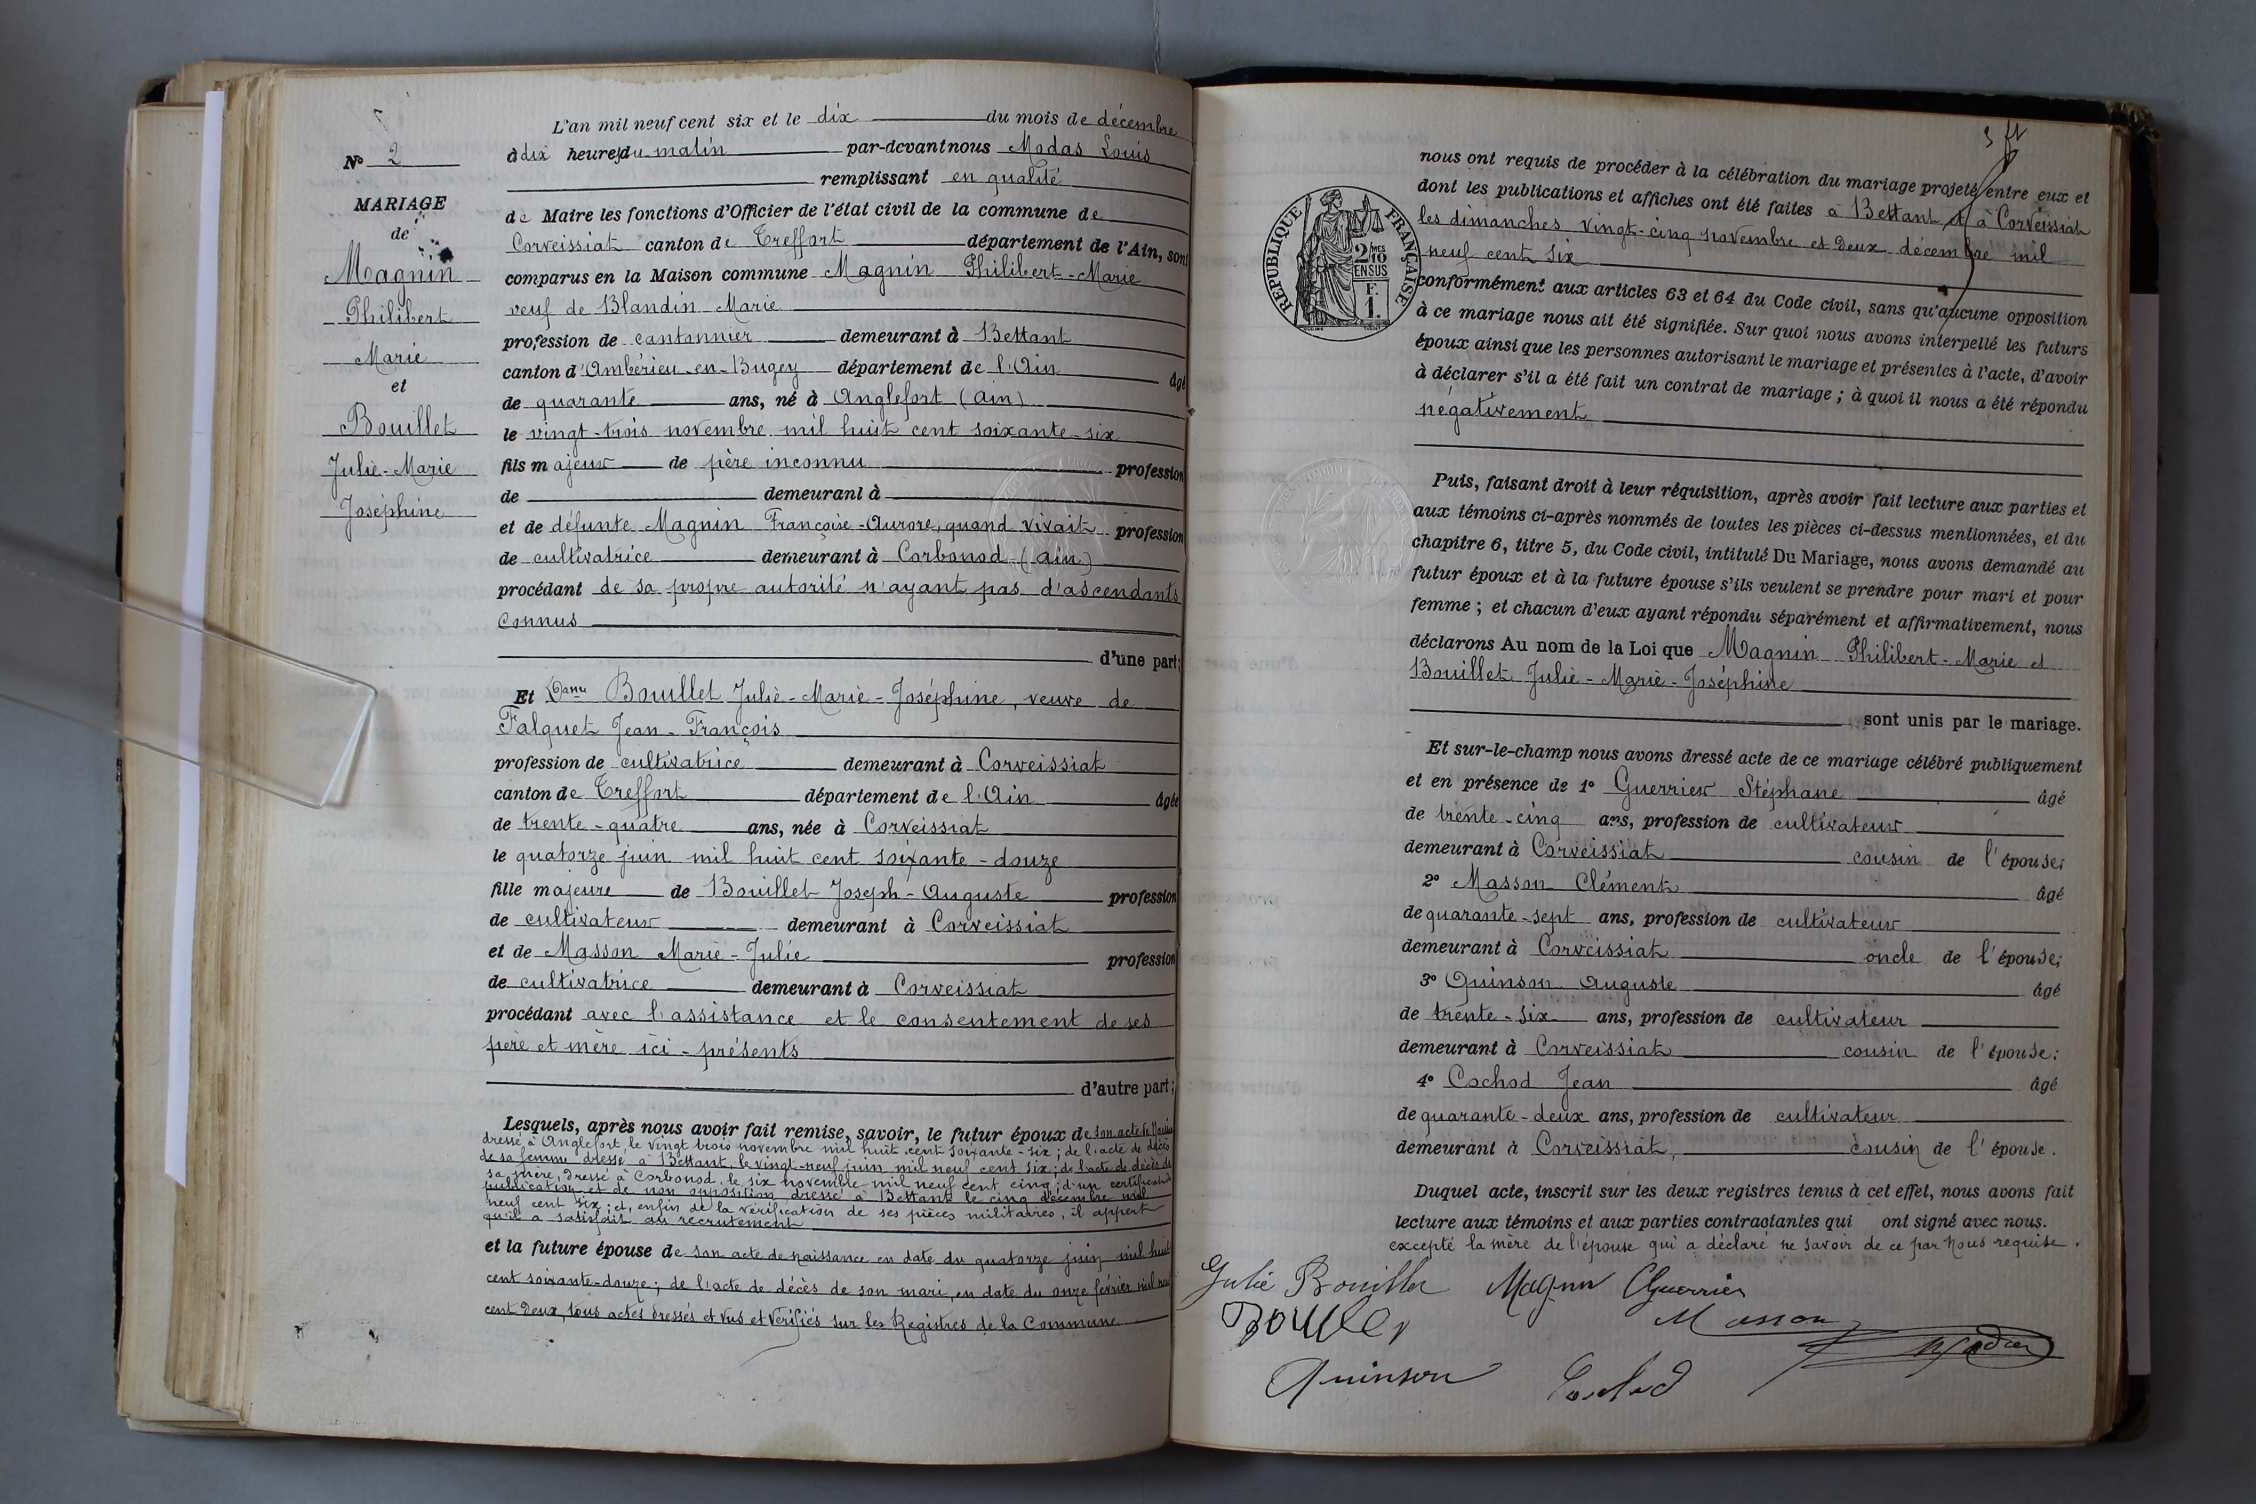 L'an mil neuf cent six et le dix du mois de décembre
à dix heures du matin par-devant nous Modas Louis
remplissant en qualité
de Maire les fonctions d'Officier de l'état civil de la commune de
Corveissiat canton de Treffort département de l'Ain, sont
comparus en la Maison commune Magnin Philibert-Marie
veuf de Blandin Marie
profession de cantonnier demeurant à Bettant
canton d'Ambérieu-en-Bugey département de l'Ain âgé
de quarante ans, né à Anglefort (Ain)
le vingt-trois novembre mil huit cent soixante-six
fils majeur de père inconnu profession
de demeurant à
et de défunte Magnin Françoise-Aurore, quand vivait profession
de cultivatrice demeurant à Corbonod (Ain)
procédant de sa propre autorité n'ayant pas d'ascendants
connus
d'une part;
Et Dame Bouillet Julie-Marie-Joséphine, veuve de
Falquet Jean-François
profession de cultivatrice demeurant à Corveissiat
canton de Treffort département de l'Ain âgée
de trente-quatre ans, née à Corveissiat
le quatorze juin mil huit cent soixante-douze
fille majeure de Bouillet Joseph-Auguste profession
de cultivateur demeurant à Corveissiat
et de Masson Marie-Julie profession
de cultivatrice demeurant à Corveissiat
procédant avec l'assistance et le consentement de ses
père et mère ici-présents
d'autre part;
Lesquels, après nous avoir fait remise, savoir, le futur époux de son acte de
dressé à Anglefort, le vingt trois novembre mil huit cent soixante-six; de l'acte de décès
de sa femme dressé à Bettant, le vingt-neuf juin mil neuf cent six; de l'acte de décès de
sa mère, dressé à Corbonod, le six novembre mil neuf cent cinq; d'un certificat de
publication et de non opposition dressé à Bettant le cinq décembre mil
neuf cent six; et, enfin de la vérification de ses pièces militaires, il appert
qu'il a satisfait au recrutement
et la future épouse de son acte de naissance en date du quatorze juin mil huit
cent soixante-douze; de l'acte de décès de son mari, en date du onze février mil neuf
cent deux, tous actes dressés et vus et vérifiés sur les Registres de la Commune
No 2
MARIAGE
de
Magnin
Philibert
Marie
et
Bouillet
Julie-Marie
Joséphine
RÉPUBLIQUE FRANÇAISE
2/10
EN SUS
F.
1.
nous ont requis de procéder à la célébration du mariage projeté entre eux et
dont les publications et affiches ont été faites à Bettant et à Corveissiat
les dimanches vingt-cinq novembre et deux décembre mil
neuf cent six
conformément aux articles 63 et 64 du Code civil, sans qu'aucune opposition
à ce mariage nous ait été signifiée. Sur quoi nous avons interpellé les futurs
époux ainsi que les personnes autorisant le mariage et présentes à l'acte, d'avoir
à déclarer s'il a été fait un contrat de mariage; à quoi il nous a été répondu
négativement
Puis, faisant droit à leur réquisition, après avoir fait lecture aux parties et
aux témoins ci-après nommés de toutes les pièces ci-dessus mentionnées, et du
chapitre 6, titre 5, du Code civil, intitulé Du Mariage, nous avons demandé au
futur époux et à la future épouse s'ils veulent se prendre pour mari et pour
femme; et chacun d'eux ayant répondu séparément et affirmativement, nous
déclarons Au nom de la Loi que Magnin Philibert-Marie et
Bouillet Julie-Marie-Joséphine
sont unis par le mariage.
Et sur-le-champ nous avons dressé acte de ce mariage célébré publiquement
et en présence de 1o Guerrier Stéphane âgé
de trente-cinq ans, profession de cultivateur
demeurant à Corveissiat cousin de l'épouse;
2o Masson Clément âgé
de quarante-sept ans, profession de cultivateur
demeurant à Corveissiat oncle de l'épouse;
3o Quinson Auguste âgé
de trente-six ans, profession de cultivateur
demeurant à Corveissiat cousin de l'épouse;
4o Cochod Jean âgé
de quarante-deux ans, profession de cultivateur
demeurant à Corveissiat, cousin de l'épouse.
Duquel acte, inscrit sur les deux registres tenus à cet effet, nous avons fait
lecture aux témoins et aux parties contractantes qui ont signé avec nous.
excepté la mère de l'épouse qui a déclaré ne savoir de ce par nous requise.
Julie Bouillet Magnin Guerrier
Bouillet Masson
Quinson Cochod